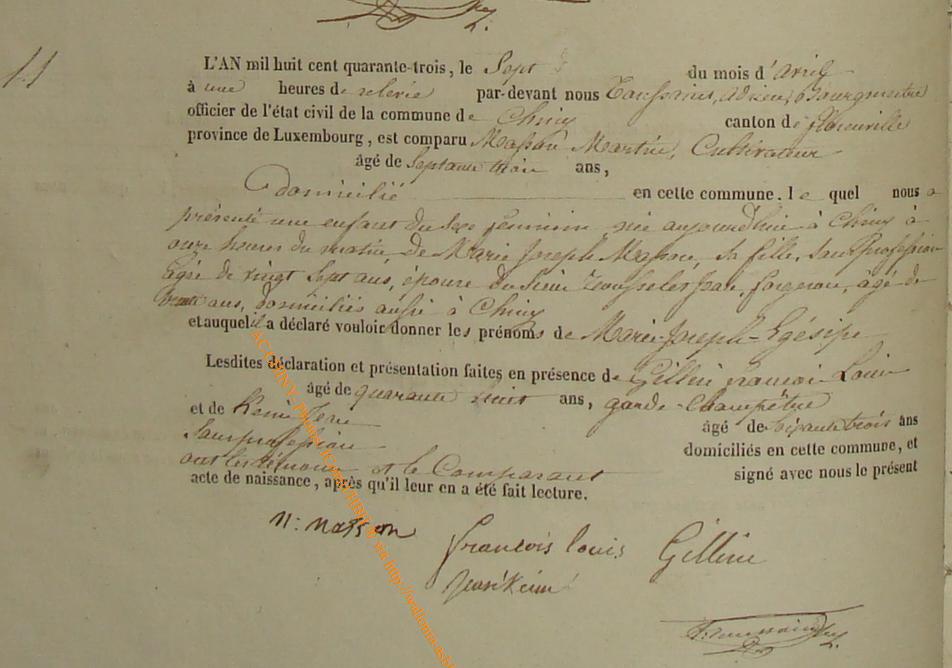 11
L'AN mil huit cent quarante-trois, le Sept du mois d'avril
à une heures de relevée par-devant nous Toussaint, Adrien, Bourgmestre
officier de l'état civil de la commune de Chiny canton de florenville
province de Luxembourg, est comparu Masson Martin, Cultivateur
âgé de Septante trois ans,
Domicilié en cette commune. le quel nous a
présenté une enfant du Sexe féminin née aujourd'hui à Chiny à
onze heures du matin, de Marie Joseph Masson, Sa fille, Sans profession
agée de vingt Sept ans, épouse du Sieur Jean, forgeron, âgé de
trente ans, domiciliés aussi à Chiny
et auquel il a déclaré vouloir donner les prénoms de Marie-Joseph-Egésipe
Lesdites déclaration et présentation faites en présence de Gillin françois Louis
âgé de quarante huit ans, garde-Champêtre
et de âgé de soixante trois ans
Sans profession domiciliés en cette commune, et
ont les témoins et le Comparant signé avec nous le présent
acte de naissance, après qu'il leur en a été fait lecture.
M: Masson
françois louis Gillin
A. Toussaint